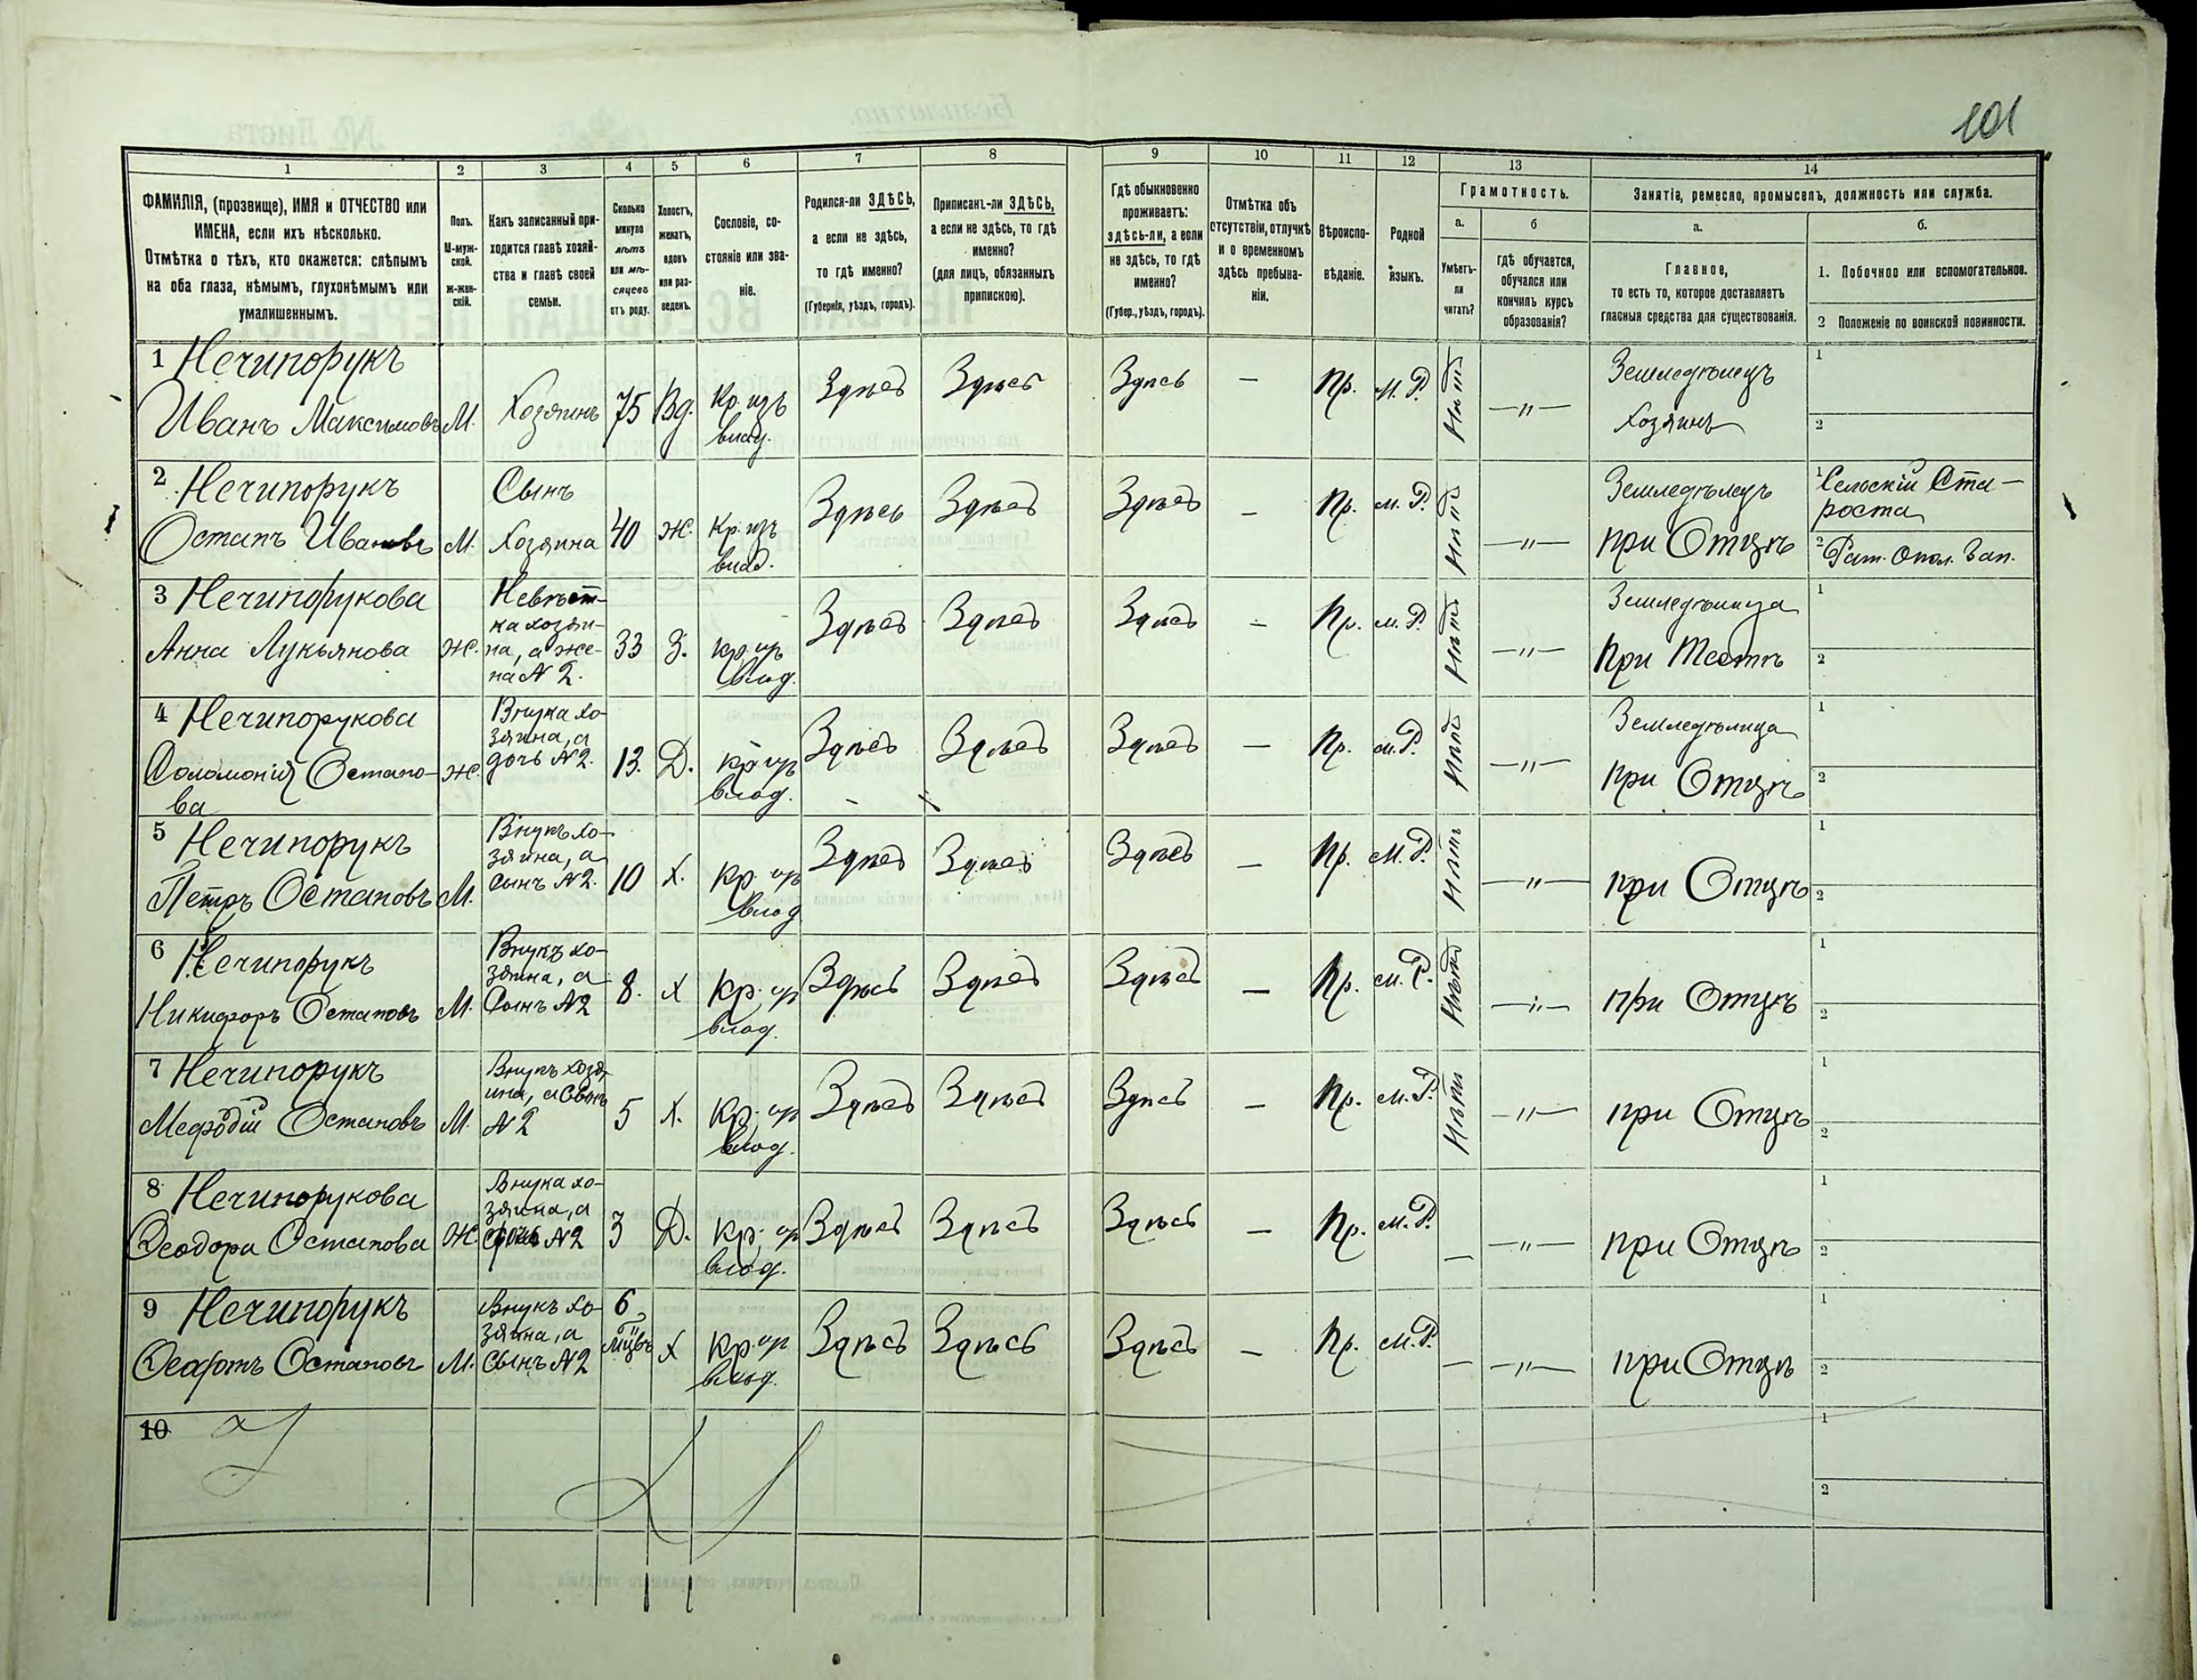 101
1 2 3 4 5 6 7 8 9 10 11 12 13 14
ФАМИЛІЯ, (прозвище), ИМЯ и ОТЧЕСТВО или
ИМЕНА, если ихъ нѣсколько.
Отмѣтка о тѣхъ, кто окажется: слѣпымъ
на оба глаза, нѣмымъ, глухонѣмымъ или
умалишеннымъ.
Полъ.
М-муж-
ской.
Ж-жен-
скій.
Какъ записанный при-
ходится главѣ хозяй-
ства и главѣ своей
семьи.
Сколько
минуло
лѣтъ
или мѣ-
сяцевъ
отъ роду.
Холостъ,
женатъ,
вдовъ
или раз-
веденъ.
Сословіе, со-
стояніе или зва-
ніе.
Родился-ли ЗДѢСЬ,
а если не здѣсь,
то гдѣ именно?
(Губернія, уѣздъ, городъ).
Приписанъ-ли ЗДѢСЬ,
а если не здѣсь, то гдѣ
именно?
(для лицъ, обязанныхъ
припискою).
Гдѣ обыкновенно
проживаетъ:
здѣсь-ли, а если
не здѣсь, то гдѣ
именно?
(Губер., уѣздъ, городъ).
Отмѣтка объ
отсутствіи, отлучкѣ
и о временномъ
здѣсь пребыва-
ніи.
Вѣроиспо-
вѣданіе.
Родной
языкъ.
Грамотность.
а.
Умѣетъ-
ли
читать?
б
гдѣ обучается,
обучался или
кончилъ курсъ
образованія?
Занятія, ремесло, промыселъ, должность или служба.
а.
Главное,
то есть то, которое доставляетъ
гласныя средства для существованія.
б.
1. Побочное или вспомогательное.
2 Положеніе по воинской повинности.
1 Нечипорукъ
Иванъ Максимовъ М. Хозяинъ 75 Вд. Кр. изъ
влад.
Здѣсь Здѣсь Здѣсь — Пр. М. Р. Нѣтъ —"—
Земледѣлецъ
Хозяинъ
1
2
2 Нечипорукъ
Остапъ Ивановъ М.
Сынъ
Хозяина
40 Ж. Кр. изъ
влад.
Здѣсь Здѣсь Здѣсь — Пр. М. Р. Нѣтъ —"—
Земледѣлецъ
при Отцѣ
1 Селскій Ста-
роста
2 Рат. Опол. Зап.
3 Нечипорукова
Анна Лукьянова Ж.
Невѣст-
ка хозяи-
на, а же-
на № 2.
33 З. Кр. изъ
влад.
Здѣсь Здѣсь Здѣсь — Пр. М. Р. Нѣтъ —"—
Земледѣлица
При Тестѣ
1
2
4 Нечипорукова
Соломонія Остапо-
ва
Ж.
Внука хо-
зяина, а
дочь № 2.
13. Д. Кр. изъ
влад.
Здѣсь Здѣсь Здѣсь — Пр. М. Р. Нѣтъ —"—
Земледѣлица
при Отцѣ
1
2
5 Нечипорукъ
Петръ Остаповъ М.
Внукъ хо-
зяина, а
сынъ № 2.
10 Х. Кр. из
влад
Здѣсь Здѣсь Здѣсь — Пр. М. Р. Нѣтъ —"—
при Отцѣ
1
2
6 Нечипорукъ
Никифоръ Остаповъ М.
Внукъ хо-
зяина, а
Сынъ № 2
8. Х Кр. из
влад.
Здѣсь Здѣсь Здѣсь — Пр. М. Р. Нѣтъ —"—
при Отцѣ
1
2
7 Нечипорукъ
Мефодій Остаповъ М.
Внукъ хозя
ина, а Сынъ
№ 2
5 Х. Кр. из
влад.
Здѣсь Здѣсь Здѣсь — Пр. М. Р. Нѣтъ —"—
при Отцѣ
1
2
8 Нечипорукова
Ѳеодора Остапова Ж.
Внука хо-
зяина, а
дочь № 2
3 Д. Кр. из
влад.
Здѣсь Здѣсь Здѣсь — Пр. М. Р. — —"—
при Отцѣ
1
2
9 Нечипорукъ
Ѳеофотъ Остаповъ М.
Внукъ хо-
зяина, а
Сынъ № 2
6
мцвъ
Х Кр. из
влад.
Здѣсь Здѣсь Здѣсь — Пр. М. Р. — —"—
при Отцѣ
1
2
10
1
2